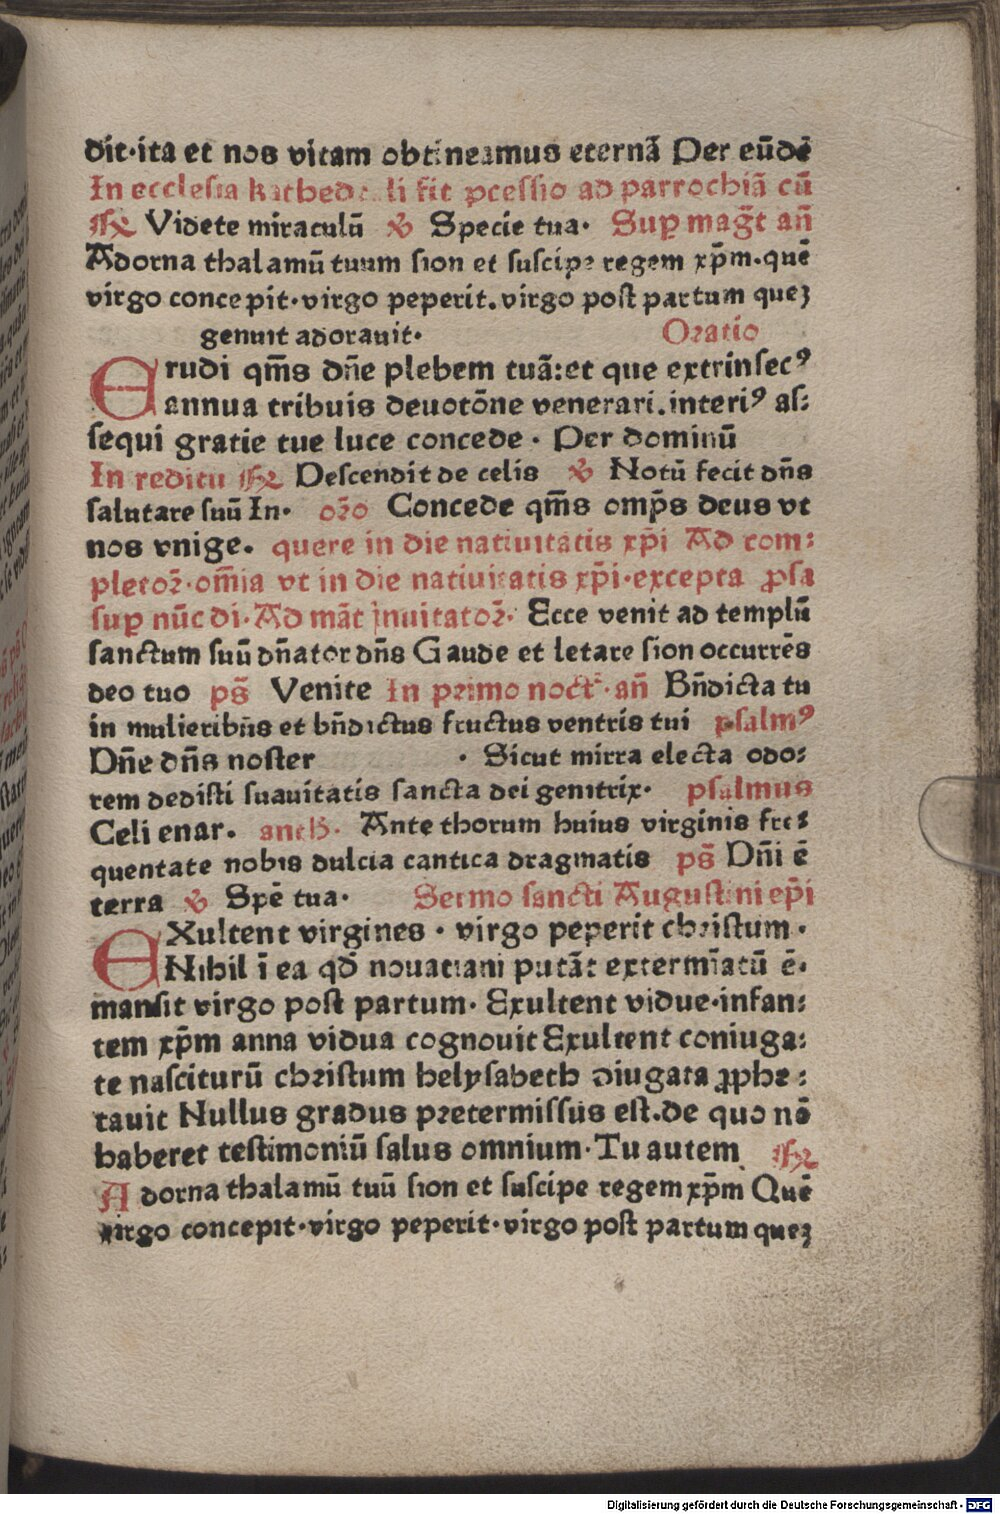 dit·ita et nos vitam obtineamus eternã Per eũdẽ
In ecclesia kathedrali fit ꝓcessio ad parrochiã cũ
℟ Videte miraculũ ℣ Specie tua· Suꝑ mag̃t añ
Adorna thalamũ tuum sion et suscipe regem xp̃m·quẽ
virgo concepit·virgo peperit.virgo post partum queꝫ
genuit adorauit· Oratio
Erudi qm̃s dñe plebem tuã:et que extrinsecꝰ
annua tribuis deuotõne venerari.interiꝰ as:
sequi gratie tue luce concede · Per dominũ
In reditu ℟ Descendit de celis ℣ Notũ fecit dñs
salutare suũ In· oꝛ̃o Concede qm̃s omp̃s deus vt
nos vnige. quere in die natiuitatis xp̃i Ad com:
pletoꝛ̃·om̃ia vt in die natiuitatis xp̃i·excepta ꝓsa
suꝑ nũc di·Ad mãt inuitatoꝛ̃· Ecce venit ad templũ
sanctum suũ dñator dñs Gaude et letare sion occurrẽs
deo tuo ps̃ Venite In primo noct̃·añ Bñdicta tu
in mulieribñs et bñdictus fructus ventris tui psalmꝰ
Dñe dñs noster · Sicut mirra electa odo:
rem dedisti suauitatis sancta dei genitrix· psalmus
Celi enar. Ante thorum huius virginis fre:
quentate nobis dulcia cantica dragmatis ps̃ Dñi ẽ
terra ℣ Spẽ tua· Sermo sancti Augustini ep̃i
EXultent virgines · virgo peperit christum ·
Nihil ĩ ea qd̃ nouatiani putãt exterm̃iatũ ẽ·
mansit virgo post partum· Exultent vidue·infan:
tem xp̃m anna vidua cognouit Exultent coniuga:
te nasciturũ christum helysabeth diugata ꝓphe:
tauit Nullus gradus pretermissus est.de quo nõ
haberet testimoniũ salus omnium·Tu autem ℟
Adorna thalamũ tuũ sion et suscipe regem xp̃m Quẽ
virgo concepit·virgo peperit·virgo post partum queꝫ
Digitalisierung gefördert durch die Deutsche Forschungsgemeinschaft · DFG